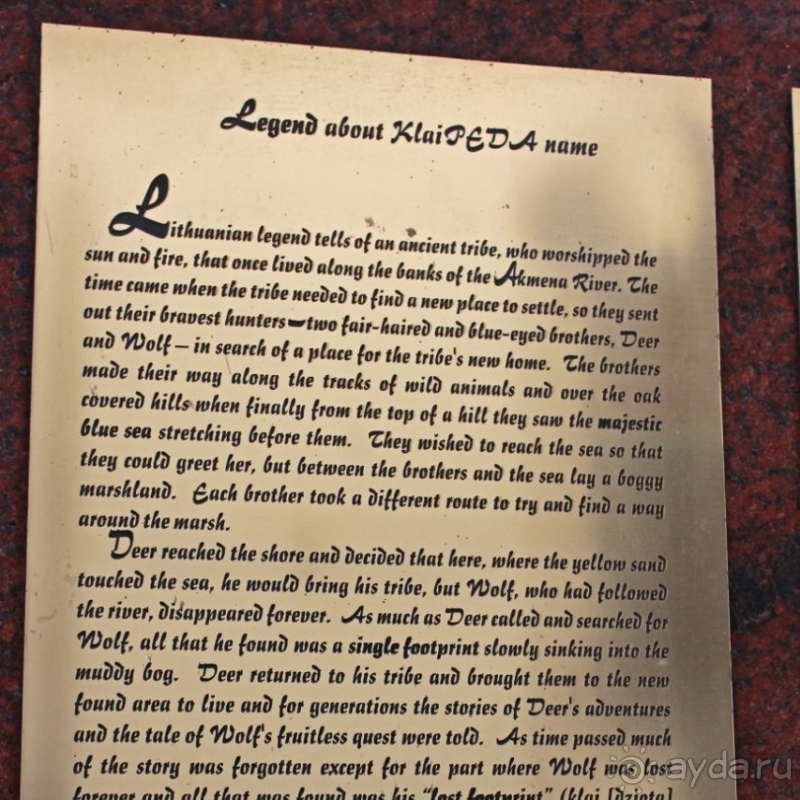 Legend about KlaiPEDA name
Lithuanian legend tells of an ancient tribe, who worshipped the
sun and fire, that once lived along the banks of the Akmena River. The
time came when the tribe needed to find a new place to settle, so they sent
out their bravest hunters—two fair-haired and blue-eyed brothers, Deer
and Wolf — in search of a place for the tribe's new home. The brothers
made their way along the tracks of wild animals and over the oak
covered hills when finally from the top of a hill they saw the majestic
blue sea stretching before them. They wished to reach the sea so that
they could greet her, but between the brothers and the sea lay a boggy
marshland. Each brother took a different route to try and find a way
around the marsh.
Deer reached the shore and decided that here, where the yellow sand
touched the sea, he would bring his tribe, but Wolf, who had followed
the river, disappeared forever. As much as Deer called and searched for
Wolf, all that he found was a single footprint slowly sinking into the
muddy bog. Deer returned to his tribe and brought them to the new
found area to live and for generations the stories of Deer's adventures
and the tale of Wolf's fruitless quest were told. As time passed much
of the story was forgotten except for the part where Wolf was lost
forever and all that was found was his "lost footprint" (klai [dziota]
ayda.ru